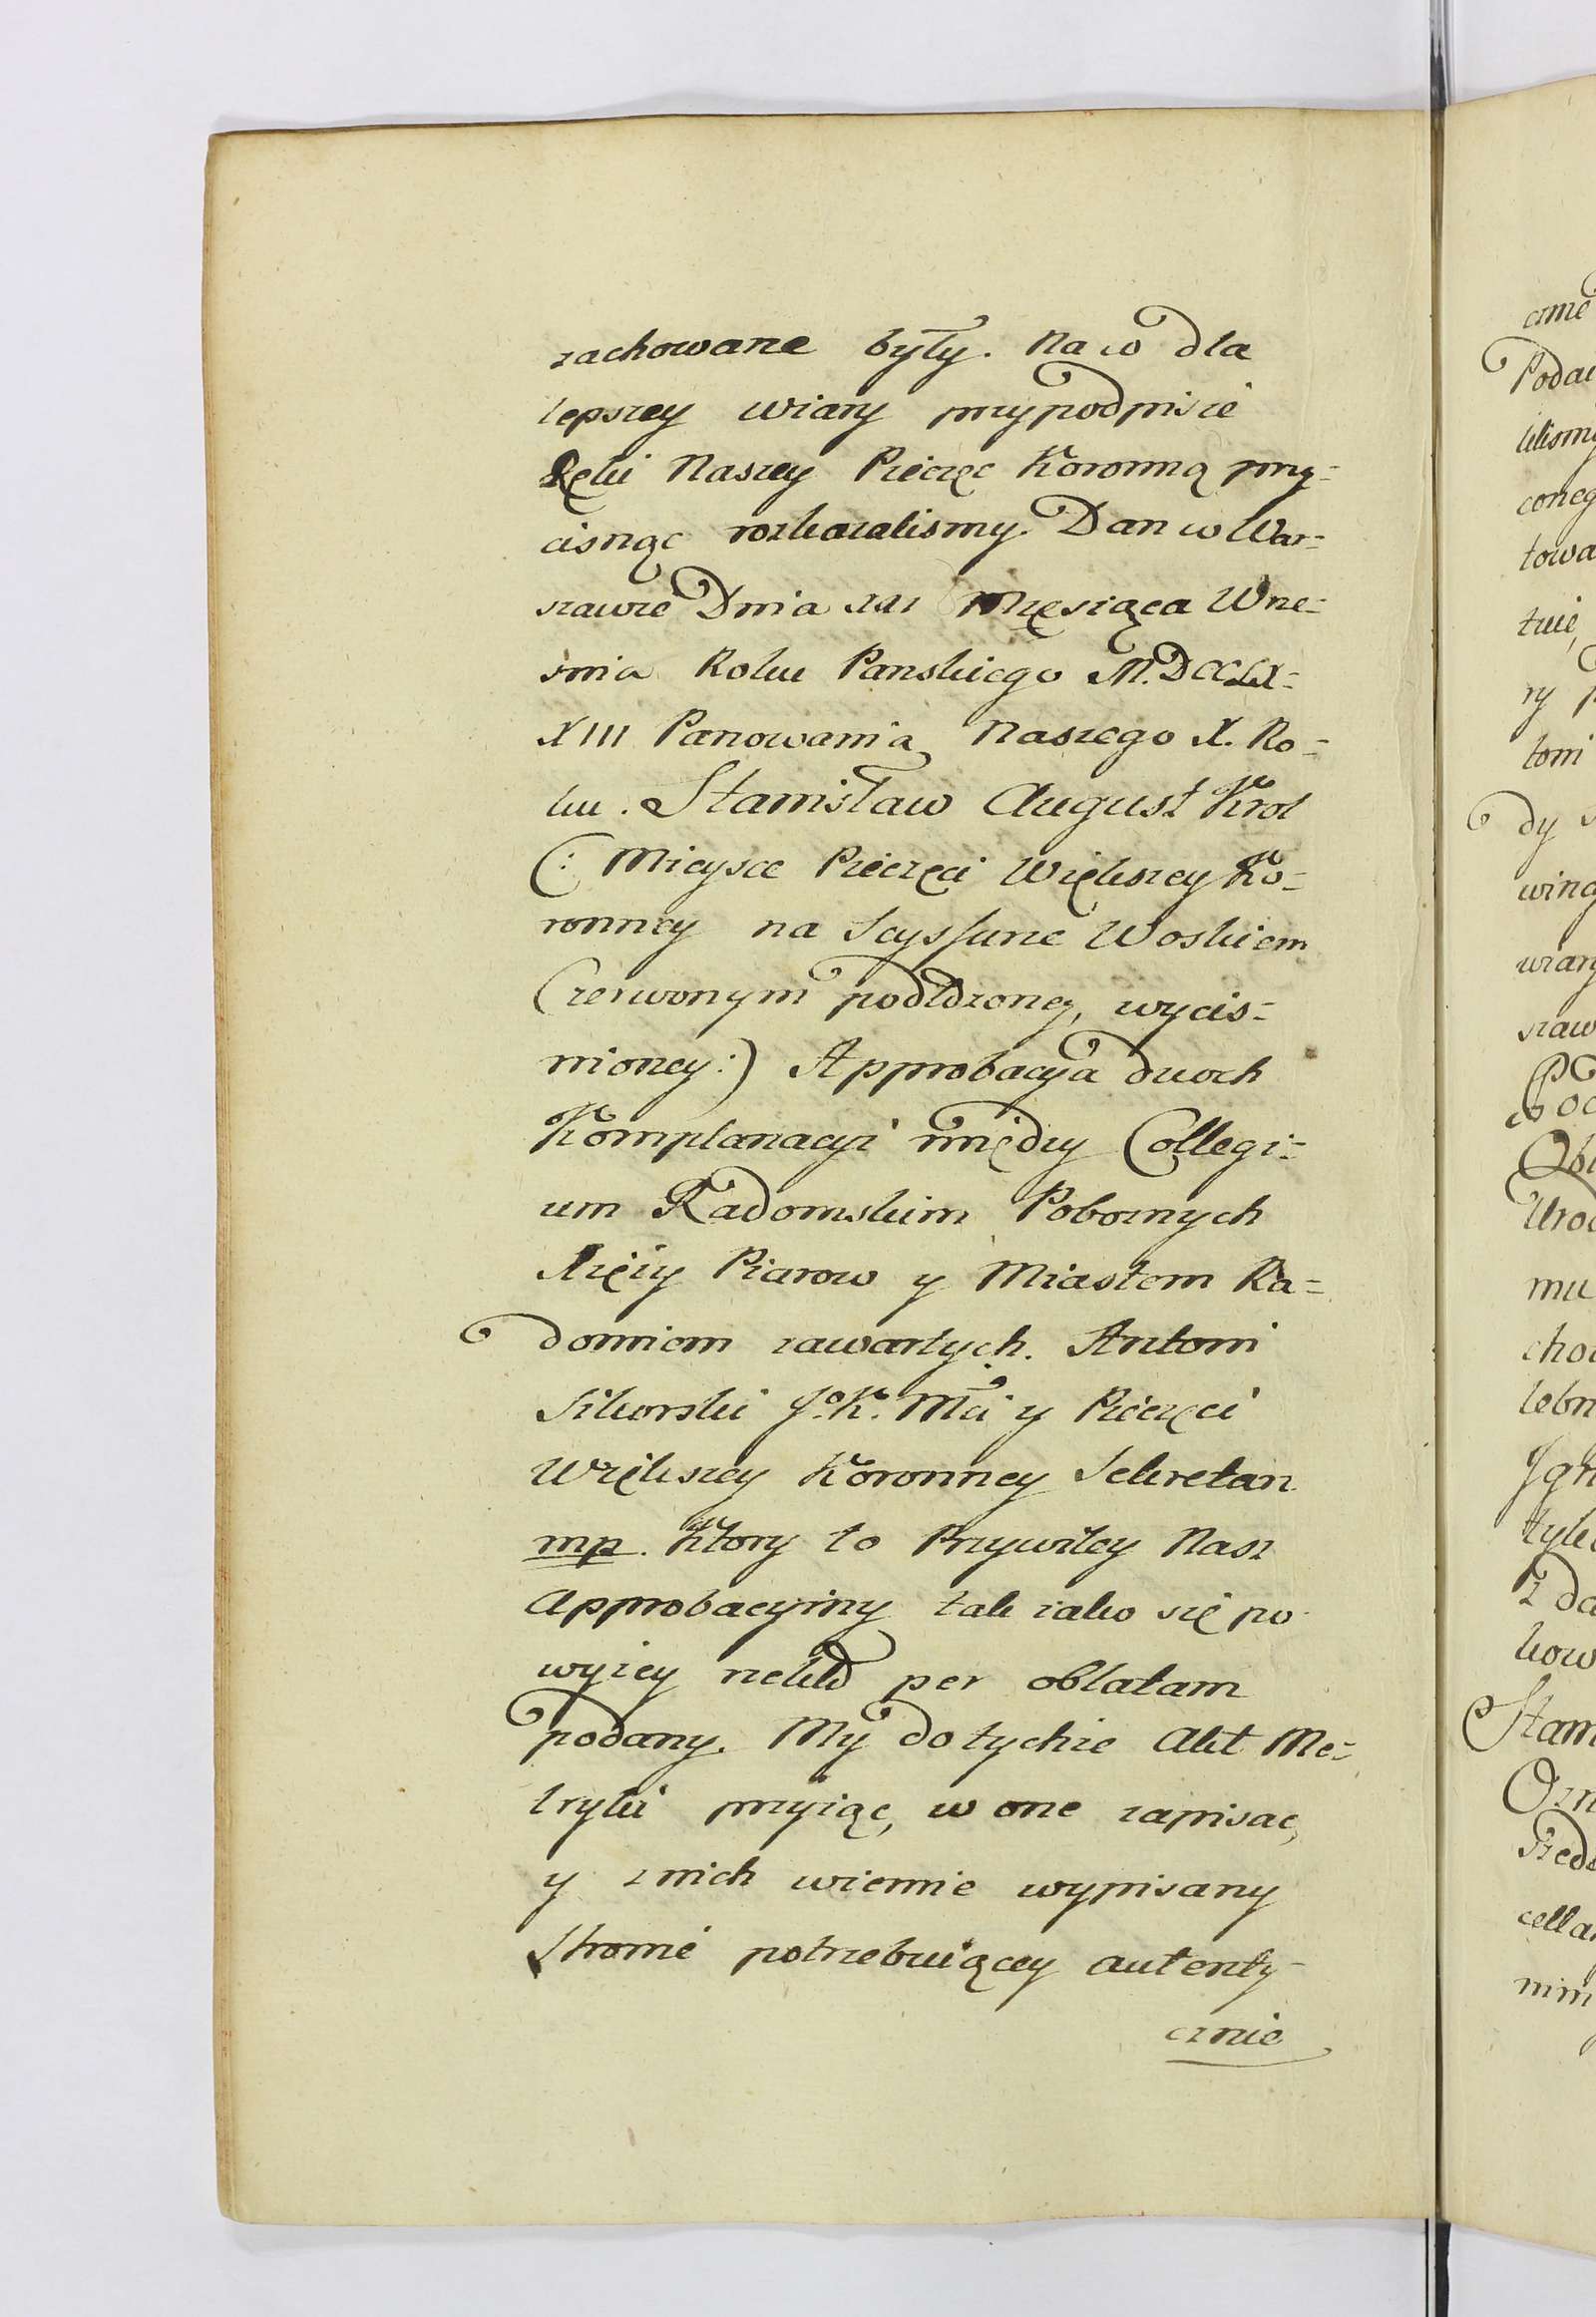 zachowane były. Na co dla
lepszey wiary przy podpisie
Ręki Naszey Pieczęc Koronną przy=
cisnąc rozkazalismy. Dan w War=
szawie Dnia XXI Miesiąca Wrze=
snia Roku Panskiego M.DCCLX=
XIII Panowania Naszego X. Ro=
ku. Stanisław August Krol
(: Mieysce Pieczęci Większey Ko=
ronney na Scyssurze Woskiem
Czerwonym podłdzoney, wycis=
nioney:) Approbacya dwoch
Komplanacyi między Collegi=
um Radomskim Pobornych
Xięży Piarow y Miastem Ra=
domiem zawartych. Antoni
Sikorski J. K. Mci y Pieczęci
Większey Koronney Sekretarz
mp. Ktory to Przywiley Nasz
Approbacyiny tak iako się po
wyżey rzekło per oblatam
podany. My do tychże Akt Me=
tryki przyiąc, w one zapisac,
y z nich wiernie wypisany
Stronie potrzebuiącey autenty-
cznie
czne
Podar
kow
Stan
cella